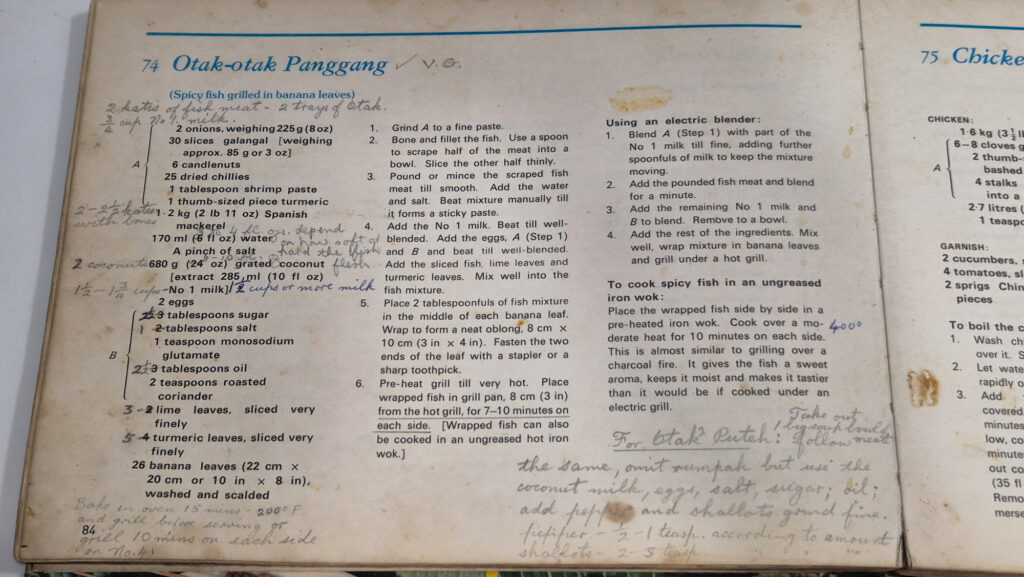 74 Otak-otak Panggang ✓ V.G.
(Spicy fish grilled in banana leaves)
2 katies of fish meat - 2 trays of Otak.
3/4 cup No 1 milk.
A
2 onions, weighing 225 g (8 oz)
30 slices galangal [weighing
approx. 85 g or 3 oz]
6 candlenuts
25 dried chillies
1 tablespoon shrimp paste
1 thumb-sized piece turmeric
2 - 2 1/2 katies
with bones
1·2 kg (2 lb 11 oz) Spanish
mackerel
4 fl ozs. depend
170 ml (6 fl oz) water
on how soft or
A pinch of salt
hard the fish
flesh.
2 coconuts
680 g (24 oz) grated coconut
[extract 285 ml (10 fl oz)
1 1/2 - 1 3/4 cups
No 1 milk]
1 1/2 cups or more milk
2 eggs
B
3 tablespoons sugar
1 2 tablespoons salt
1 teaspoon monosodium
glutamate
2 1/2 3 tablespoons oil
2 teaspoons roasted
coriander
3 - 2 lime leaves, sliced very
finely
5 4 turmeric leaves, sliced very
finely
26 banana leaves (22 cm ×
20 cm or 10 in × 8 in),
washed and scalded
Bake in oven 15 mins - 200° F
and grill before serving or
grill 10 mins on each side
on No. 4
84
1. Grind A to a fine paste.
2. Bone and fillet the fish. Use a spoon
to scrape half of the meat into a
bowl. Slice the other half thinly.
3. Pound or mince the scraped fish
meat till smooth. Add the water
and salt. Beat mixture manually till
it forms a sticky paste.
4. Add the No 1 milk. Beat till well-
blended. Add the eggs, A (Step 1)
and B and beat till well-blended.
Add the sliced fish, lime leaves and
turmeric leaves. Mix well into the
fish mixture.
5. Place 2 tablespoonfuls of fish mixture
in the middle of each banana leaf.
Wrap to form a neat oblong, 8 cm ×
10 cm (3 in × 4 in). Fasten the two
ends of the leaf with a stapler or a
sharp toothpick.
6. Pre-heat grill till very hot. Place
wrapped fish in grill pan, 8 cm (3 in)
from the hot grill, for 7–10 minutes on
each side. [Wrapped fish can also
be cooked in an ungreased hot iron
wok.]
Using an electric blender:
1. Blend A (Step 1) with part of the
No 1 milk till fine, adding further
spoonfuls of milk to keep the mixture
moving.
2. Add the pounded fish meat and blend
for a minute.
3. Add the remaining No 1 milk and
B to blend. Remove to a bowl.
4. Add the rest of the ingredients. Mix
well, wrap mixture in banana leaves
and grill under a hot grill.
To cook spicy fish in an ungreased
iron wok:
Place the wrapped fish side by side in a
pre-heated iron wok. Cook over a mo-
derate heat for 10 minutes on each side. 400°
This is almost similar to grilling over a
charcoal fire. It gives the fish a sweet
aroma, keeps it moist and makes it tastier
than it would be if cooked under an
electric grill.
Take out
1 big soup bowl of
For Otak² Puteh: follow meat
the same, omit rumpah but use the
coconut milk, eggs, salt, sugar; oil;
add pepper and shallots grind fine.
pepper - 1/2 - 1 teasp. according to amount
shallots - 2 - 3 teasp " " "
75 Chicke
CHICKEN:
1·6 kg (3 1/2 l
A
6–8 cloves g
2 thumb-
bashed
4 stalks
into a
2·7 litres (
1 teaspo
GARNISH:
2 cucumbers, s
4 tomatoes, sl
2 sprigs Chin
pieces
To boil the c
1. Wash ch
over it. S
2. Let wate
rapidly o
3. Add
covered
minutes
low, co
minute
out co
(35 fl
Remo
merse